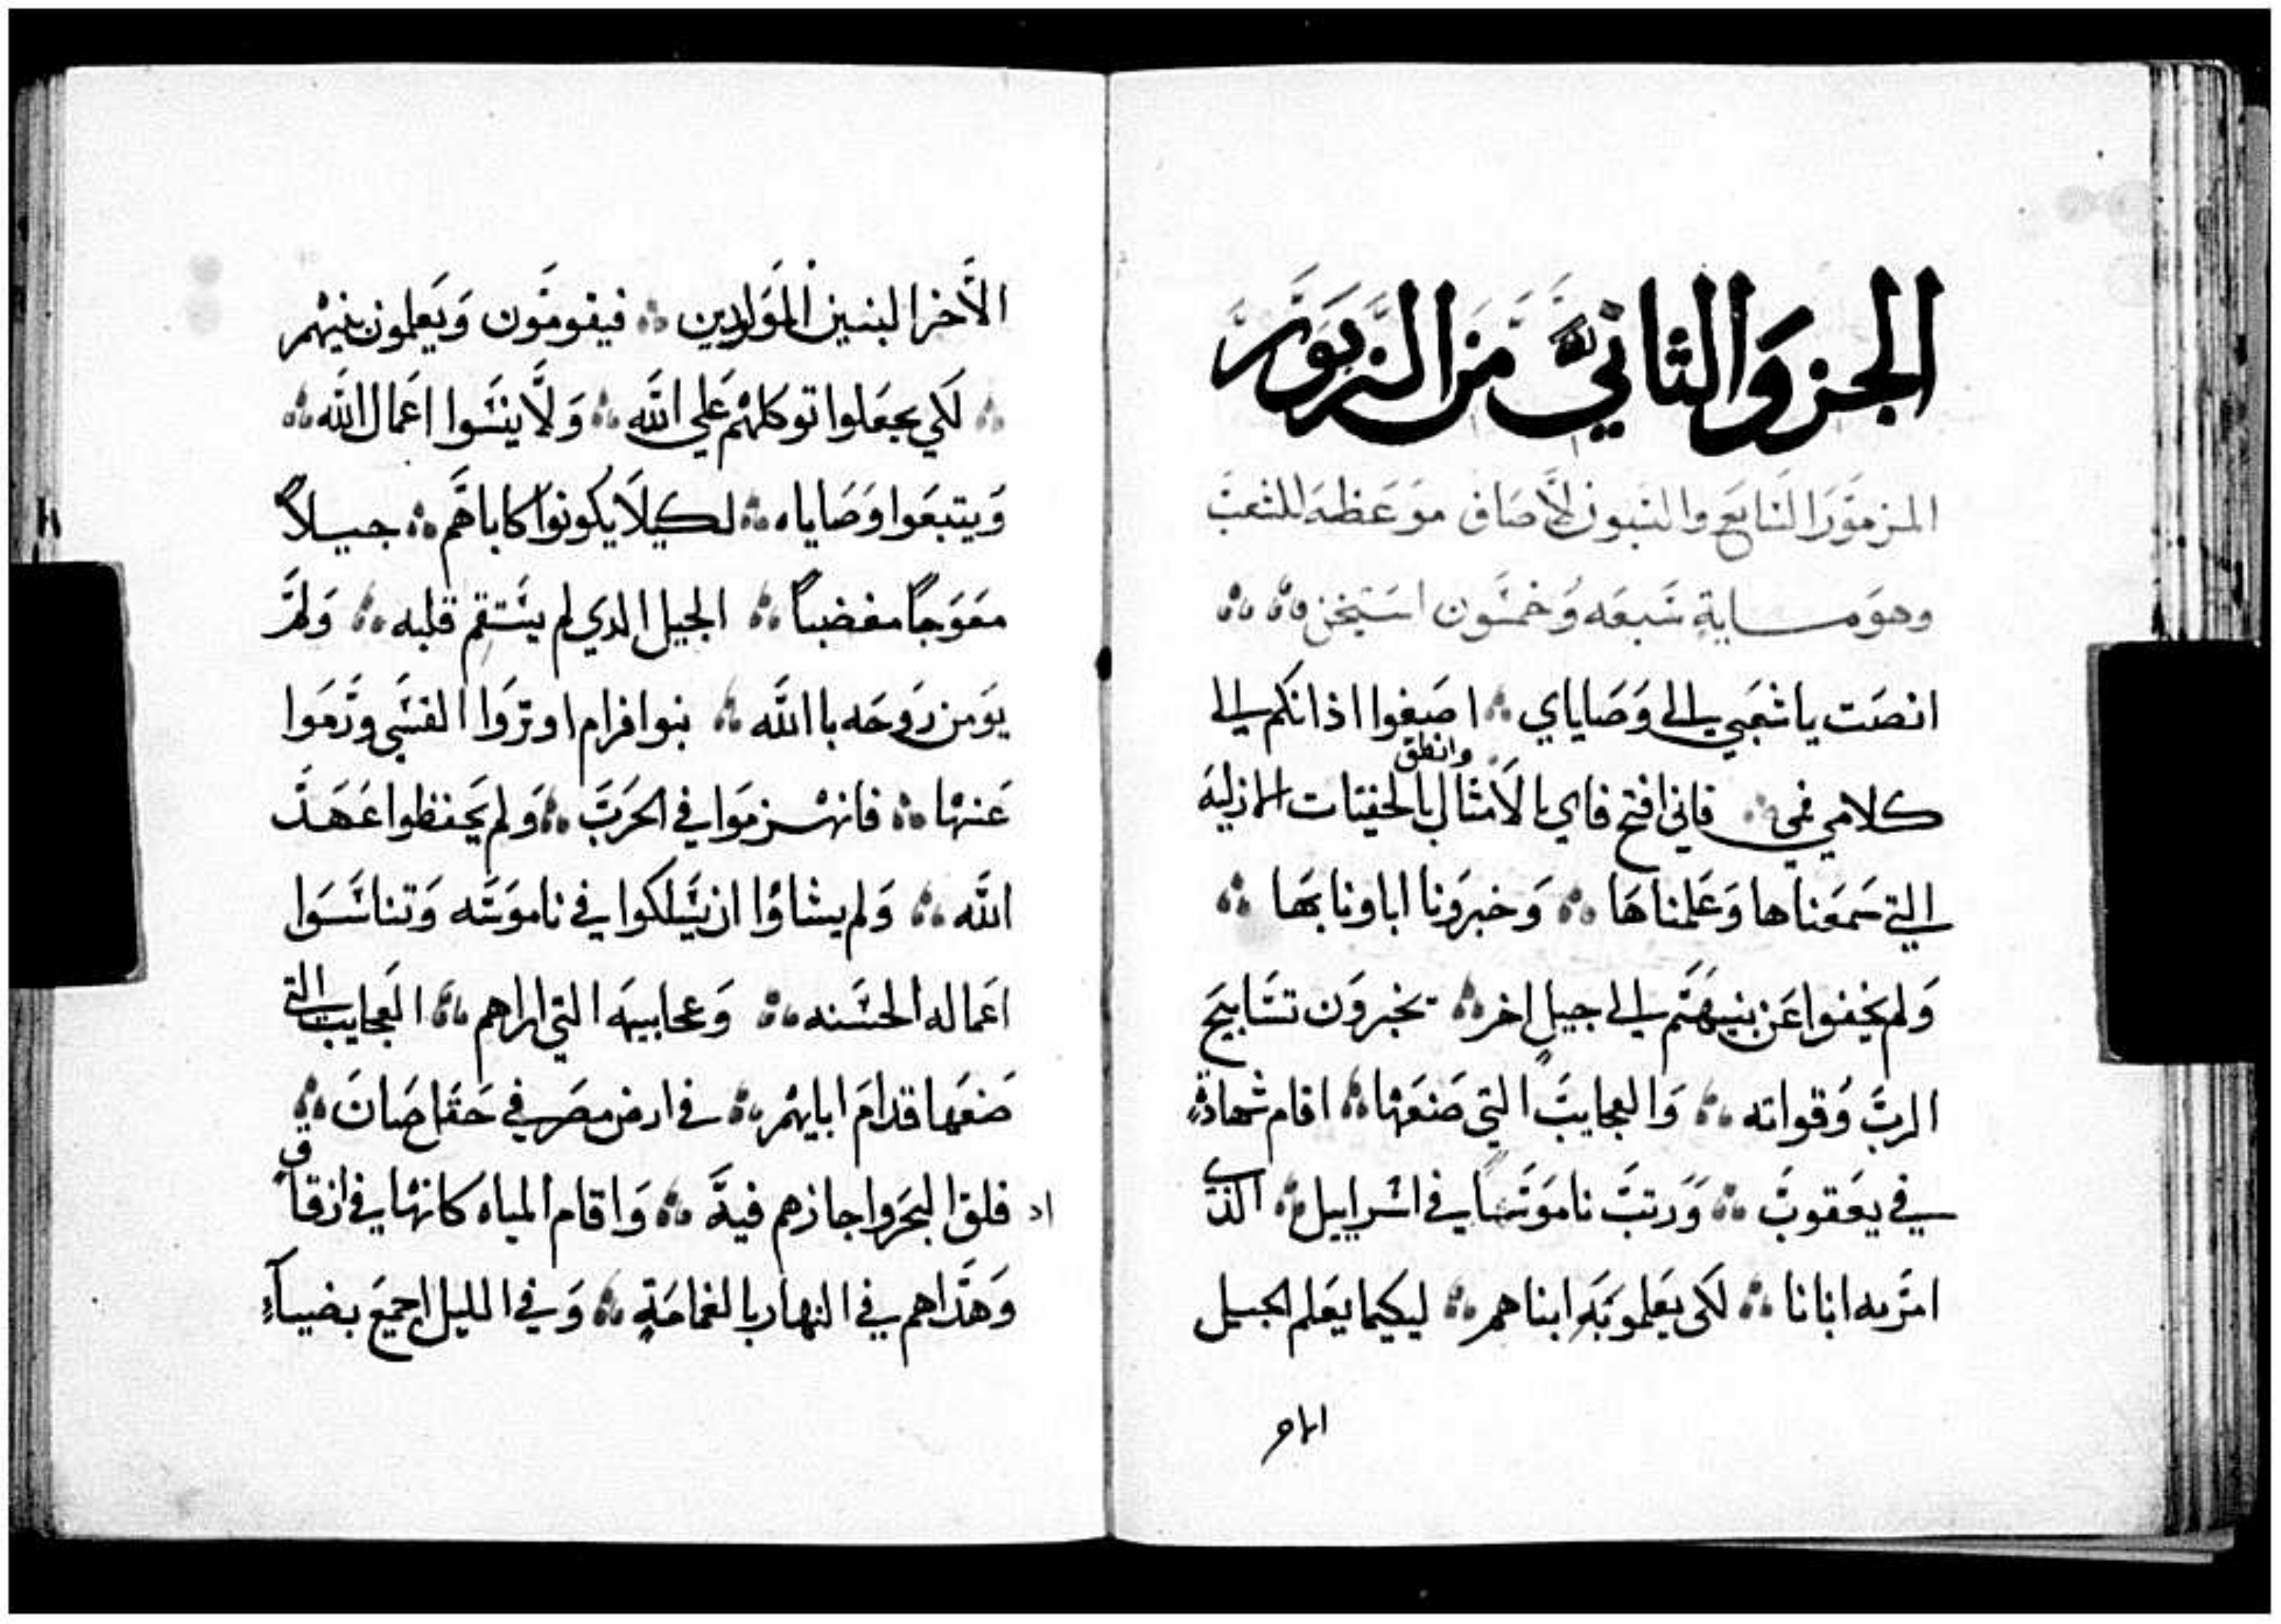 الجزو الثاني من الزبور
المزمور السابع والسبعون لاصاف موعظه للشعب
وهو مايه سبعه وخمسون استيخن
انصت ياشعبي الي وصاياي اصغوا اذانكم الي
كلامي فمي فاني افتح فاي بالامثال وانطق بالحفيات الازليه
التي سمعناها وعلمناها وخبرونا اباونا بها
ولم يخفوا عن بنيهم الي جيل اخر يخبرون تسابيح
الرب وقواته والعجايب التي صنعها اقام شهادة
في يعقوب ورتب ناموسا في اسراييل الذي
امر به ابانا لكي يعلموته ابناهم ليكيما يعلم الجيل
الاخر
الاخر البنين المولدين فيقومون ويعلمون بنيهم
لكي يجعلوا توكلهم علي الله ولا ينسوا اعمال الله
ويتبعوا وصاياه لكيلا يكونوا كاباهم جيلا
معوجا مغضبا الجيل الدي لم يستقم قلبه ولم
يومن روحه باالله بنوا افرام اوتروا القسي ورموا
عنها فانهزموا في الحرب ولم يحفظوا عهد
الله ولم يشاوا ان يسلكوا في ناموسه وتناسوا
اعماله الحسنه وعجاييبه التي اراهم العجايب التي
صنعها قدام ابايهم في ارض مصر في حقل صان
فلق البحر واجازهم فيه واقام المياه كانها في ازقاق
وهداهم في النهار بالغمامة وفي الليل اجميع بضياء